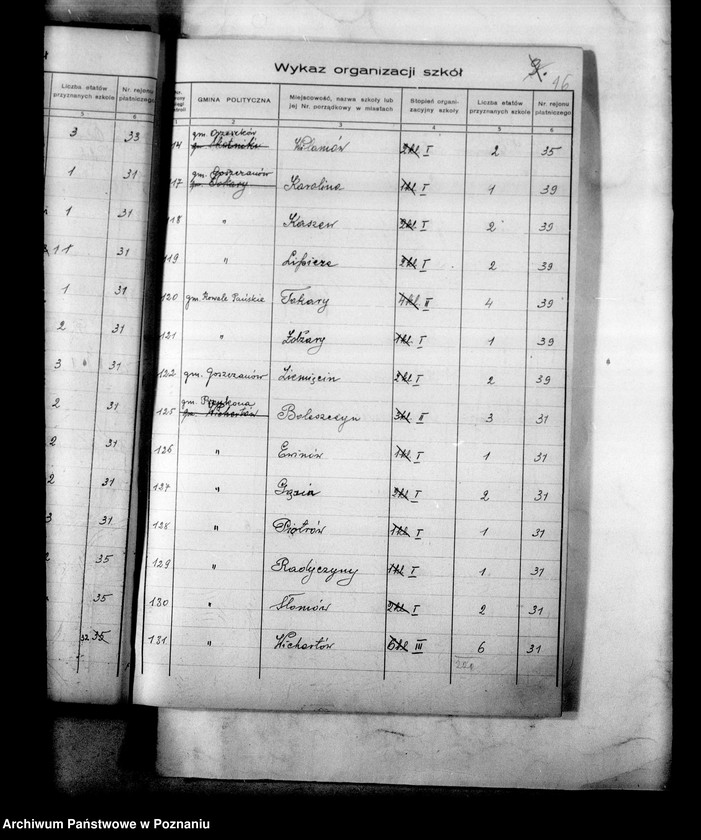 Wykaz organizacji szkół
16
Liczba etatów przyznanych szkole
Nr rejonu płatniczego
5 6
3 33
1 31
1 31
11 31
1 31
2 31
3 31
2 31
2 31
2 31
3 31
35
35
32 35
GMINA POLITYCZNA
Miejscowość, nazwa szkoły lub jej Nr. porządkowy w miastach
Stopień organizacyjny szkoły
Liczba etatów przyznanych szkole
Nr rejonu płatniczego
1 2 3 4 5 6
gm. Skotniki
14 I 2 35
gm. Goszczanów
gm. Tokary
117 Karolina 1kl. I 1 39
118 " Kaszew 2kl. I 2 39
119 " 2kl. I 2 39
120 gm. Kowale Pańskie Tokary 4kl. II 4 39
121 " Zdżary 1kl. I 1 39
122 gm. Goszczanów Ziemięcin 2kl. I 2 39
gm. Przykona
gm. Wichertów
125 Boleszczyn 3kl. II 3 31
126 " Ewinów 1kl. I 1 31
127 " Gąsin 2kl. I 2 31
128 " Piotrów 1kl. I 1 31
129 " Radyczyny 1kl. I 1 31
130 " Słomów 2kl. I 2 31
131. " Wichertów 6kl. III 6 31
Archiwum Państwowe w Poznaniu